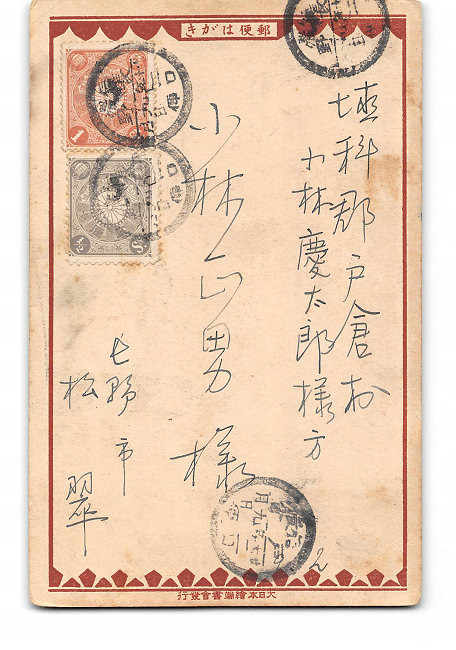 郵便はがき
埴科郡戸倉村
小林慶太郎様方
小林正男様
長野市
松翠
大日本繪端書會發行